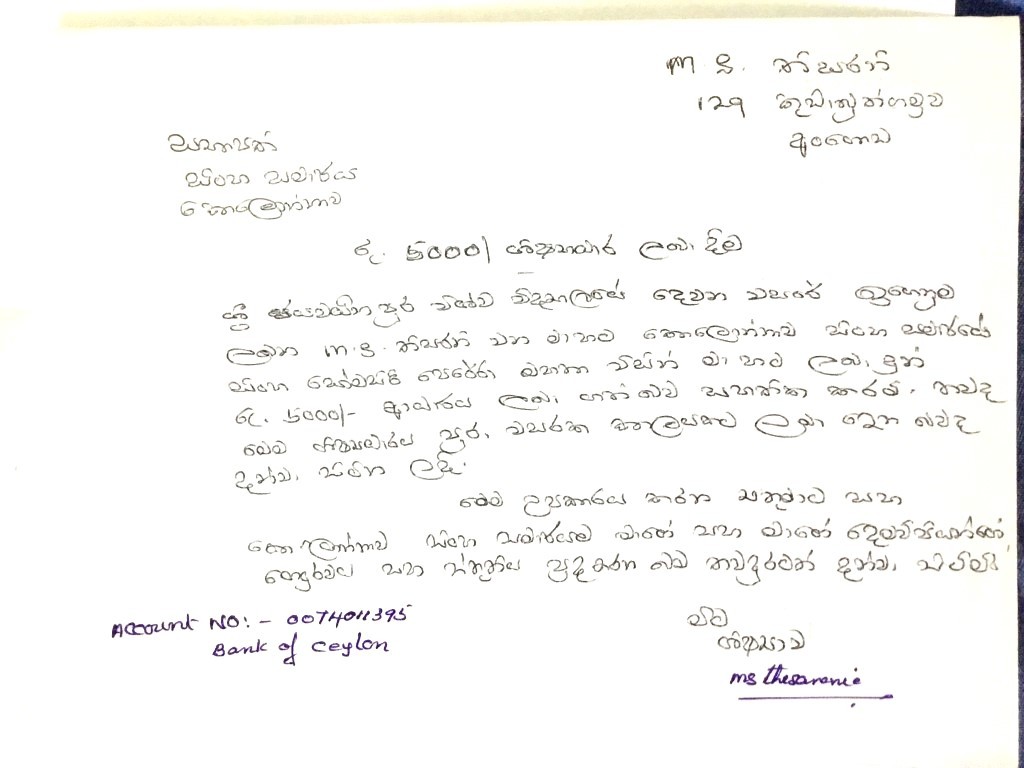 M. S. තිසරානි
129
අංගොඩ
සභාපති
සිංහ සමාජය
කොලොන්නාව
රු. 5000/ ශිෂ්‍යාධාර ලබා දීම
ශ්‍රී ජයවර්ධනපුර විශ්ව විද්‍යාලයේ දෙවන වසරේ ඉගෙනුම
ලබන M.S. තිසරානි වන මා හට කොලොන්නාව සිංහ සමාජයේ
සිංහ පෙරේරා මහතා විසින් මා හට ලබා දුන්
රු. 5000/- ආධාරය ලබා ගත් බව සහතික කරමි. තවද
මෙම පුරා වසරක කාලයකට ලබා දෙන බවද
දන්වා සිටින ලදී.
මෙම උපකාරය කරන එතුමාට සහ
කොලොන්නාව සිංහ සමාජයට මාගේ සහ මාගේ දෙමව්පියන්ගේ
ගෞරවය සහ ස්තුතිය පුද කරන බව තවදුරටත් දන්වා සිටිමි.
Account NO:- 0074011395
Bank of Ceylon
මීට
ශිෂ්‍යාව
ms thesaranie